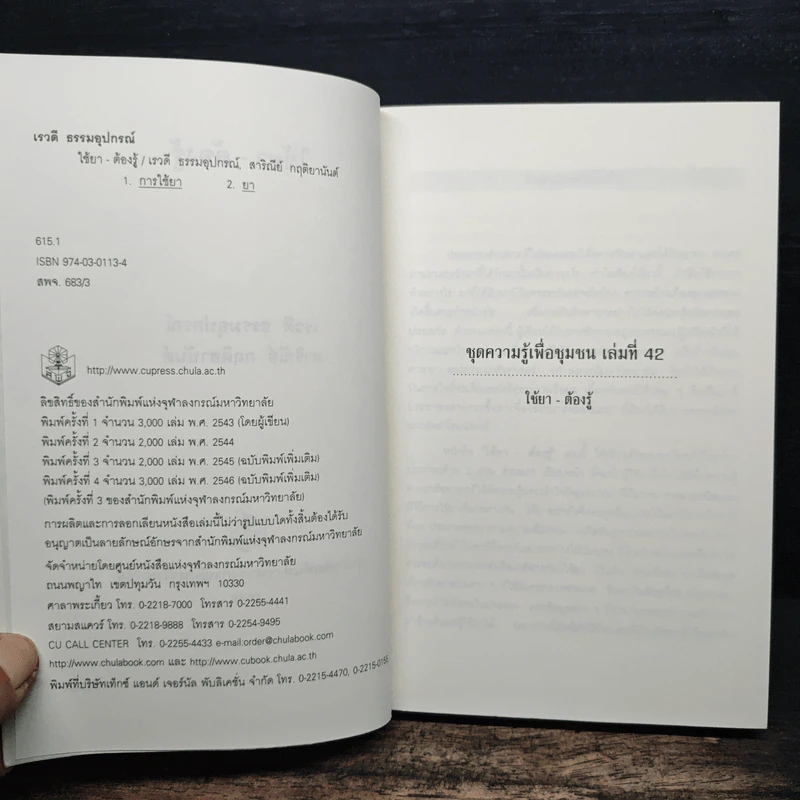 เรวดี ธรรมอุปกรณ์
ใช้ยา - ต้องรู้ / เรวดี ธรรมอุปกรณ์, สาริณีย์ กฤติยานันต์
1. การใช้ยา 2. ยา
615.1
ISBN 974-03-0113-4
สพจ. 683/3
http://www.cupress.chula.ac.th
ลิขสิทธิ์ของสำนักพิมพ์แห่งจุฬาลงกรณ์มหาวิทยาลัย
พิมพ์ครั้งที่ 1 จำนวน 3,000 เล่ม พ.ศ. 2543 (โดยผู้เขียน)
พิมพ์ครั้งที่ 2 จำนวน 2,000 เล่ม พ.ศ. 2544
พิมพ์ครั้งที่ 3 จำนวน 2,000 เล่ม พ.ศ. 2545 (ฉบับพิมพ์เพิ่มเติม)
พิมพ์ครั้งที่ 4 จำนวน 3,000 เล่ม พ.ศ. 2546 (ฉบับพิมพ์เพิ่มเติม)
(พิมพ์ครั้งที่ 3 ของสำนักพิมพ์แห่งจุฬาลงกรณ์มหาวิทยาลัย)
การผลิตและการลอกเลียนหนังสือเล่มนี้ไม่ว่ารูปแบบใดทั้งสิ้นต้องได้รับ
อนุญาตเป็นลายลักษณ์อักษรจากสำนักพิมพ์แห่งจุฬาลงกรณ์มหาวิทยาลัย
จัดจำหน่ายโดยศูนย์หนังสือแห่งจุฬาลงกรณ์มหาวิทยาลัย
ถนนพญาไท เขตปทุมวัน กรุงเทพฯ 10330
ศาลาพระเกี้ยว โทร. 0-2218-7000 โทรสาร 0-2255-4441
สยามสแควร์ โทร. 0-2218-9888 โทรสาร 0-2254-9495
CU CALL CENTER โทร. 0-2255-4433 e-mail:order@chulabook.com
http://www.chulabook.com และ http://www.cubook.chula.ac.th
พิมพ์ที่บริษัทเท็กซ์ แอนด์ เจอร์นัล พับลิเคชั่น จำกัด โทร. 0-2215-4470, 0-2215-0155
ชุดความรู้เพื่อชุมชน เล่มที่ 42
ใช้ยา - ต้องรู้